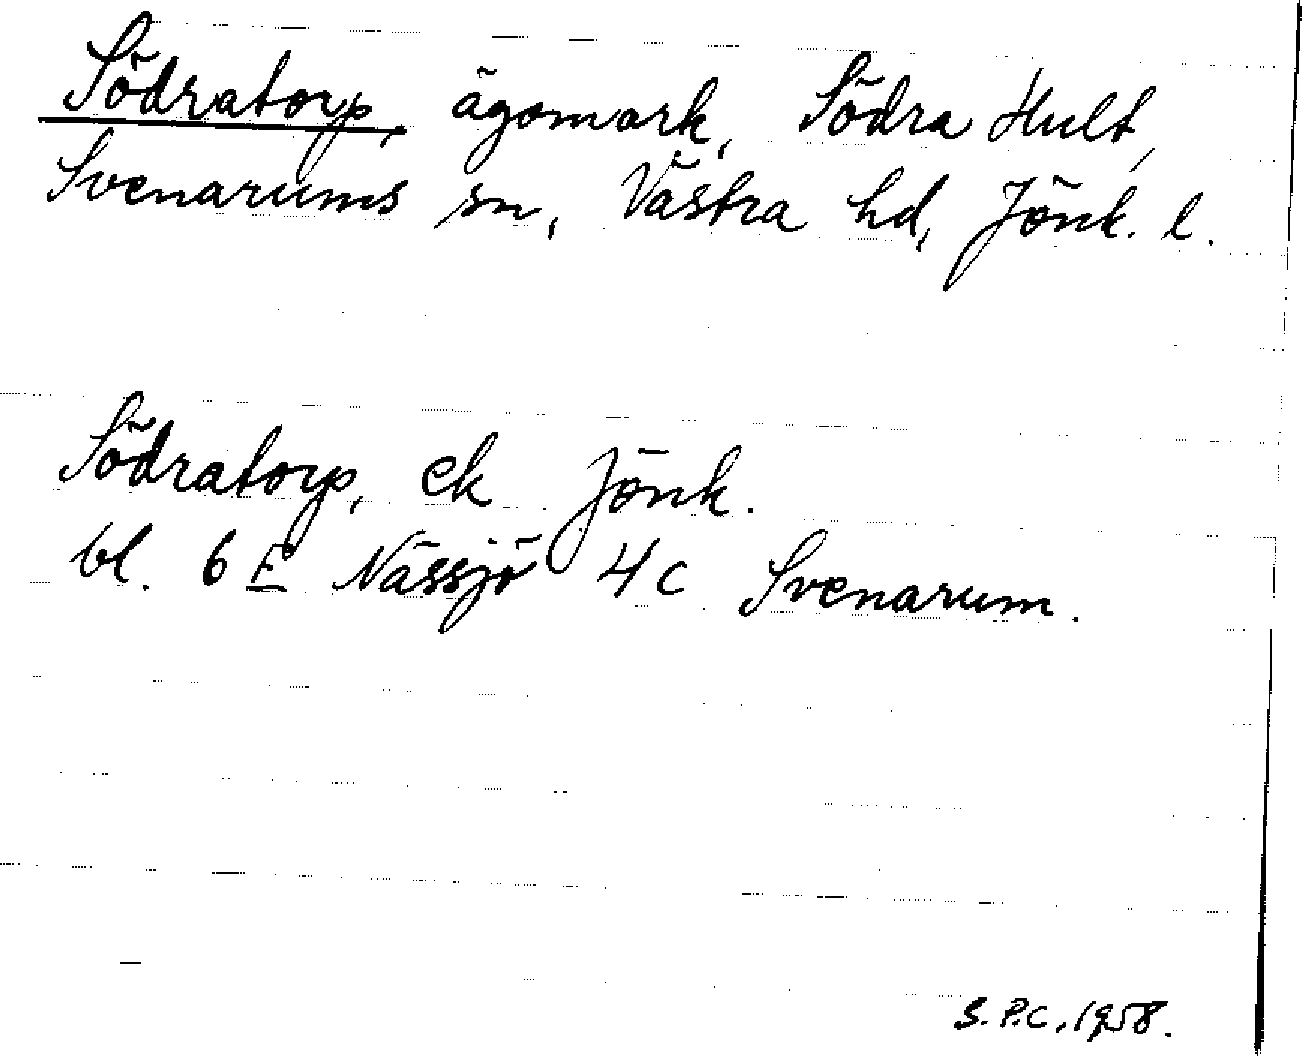 Södratorp, ägomark, Södra Hult,
Svenarums sn, Västra hd, Jönk. l.
Södratorp, ek Jönk.
bl. 6 E Nässjö 4 c Svenarum.
S.P.C. 1958.